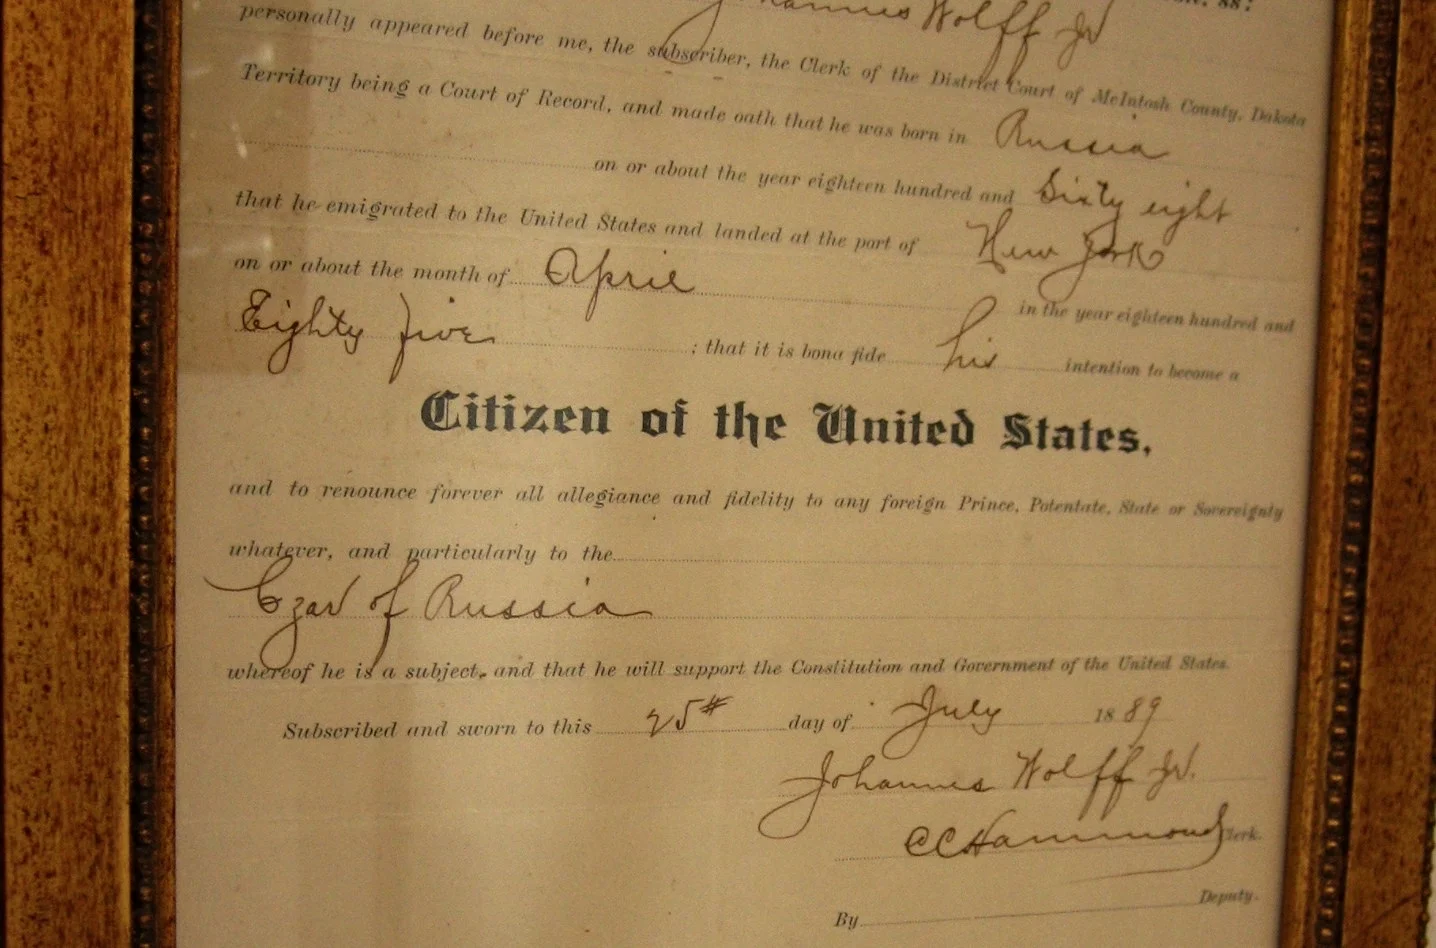 Johannes Wolff Jr ss:
personally appeared before me, the subscriber, the Clerk of the District Court of McIntosh County, Dakota
Territory being a Court of Record, and made oath that he was born in Russia
on or about the year eighteen hundred and Sixty eight
that he emigrated to the United States and landed at the port of New York
on or about the month of April in the year eighteen hundred and
Eighty five ; that it is bona fide his intention to become a
Citizen of the United States,
and to renounce forever all allegiance and fidelity to any foreign Prince, Potentate, State or Sovereignty
whatever, and particularly to the
Czar of Russia
whereof he is a subject, and that he will support the Constitution and Government of the United States.
Subscribed and sworn to this 25th day of July 1889
Johannes Wolff Jr.
CC Hammond Clerk.
Deputy.
By